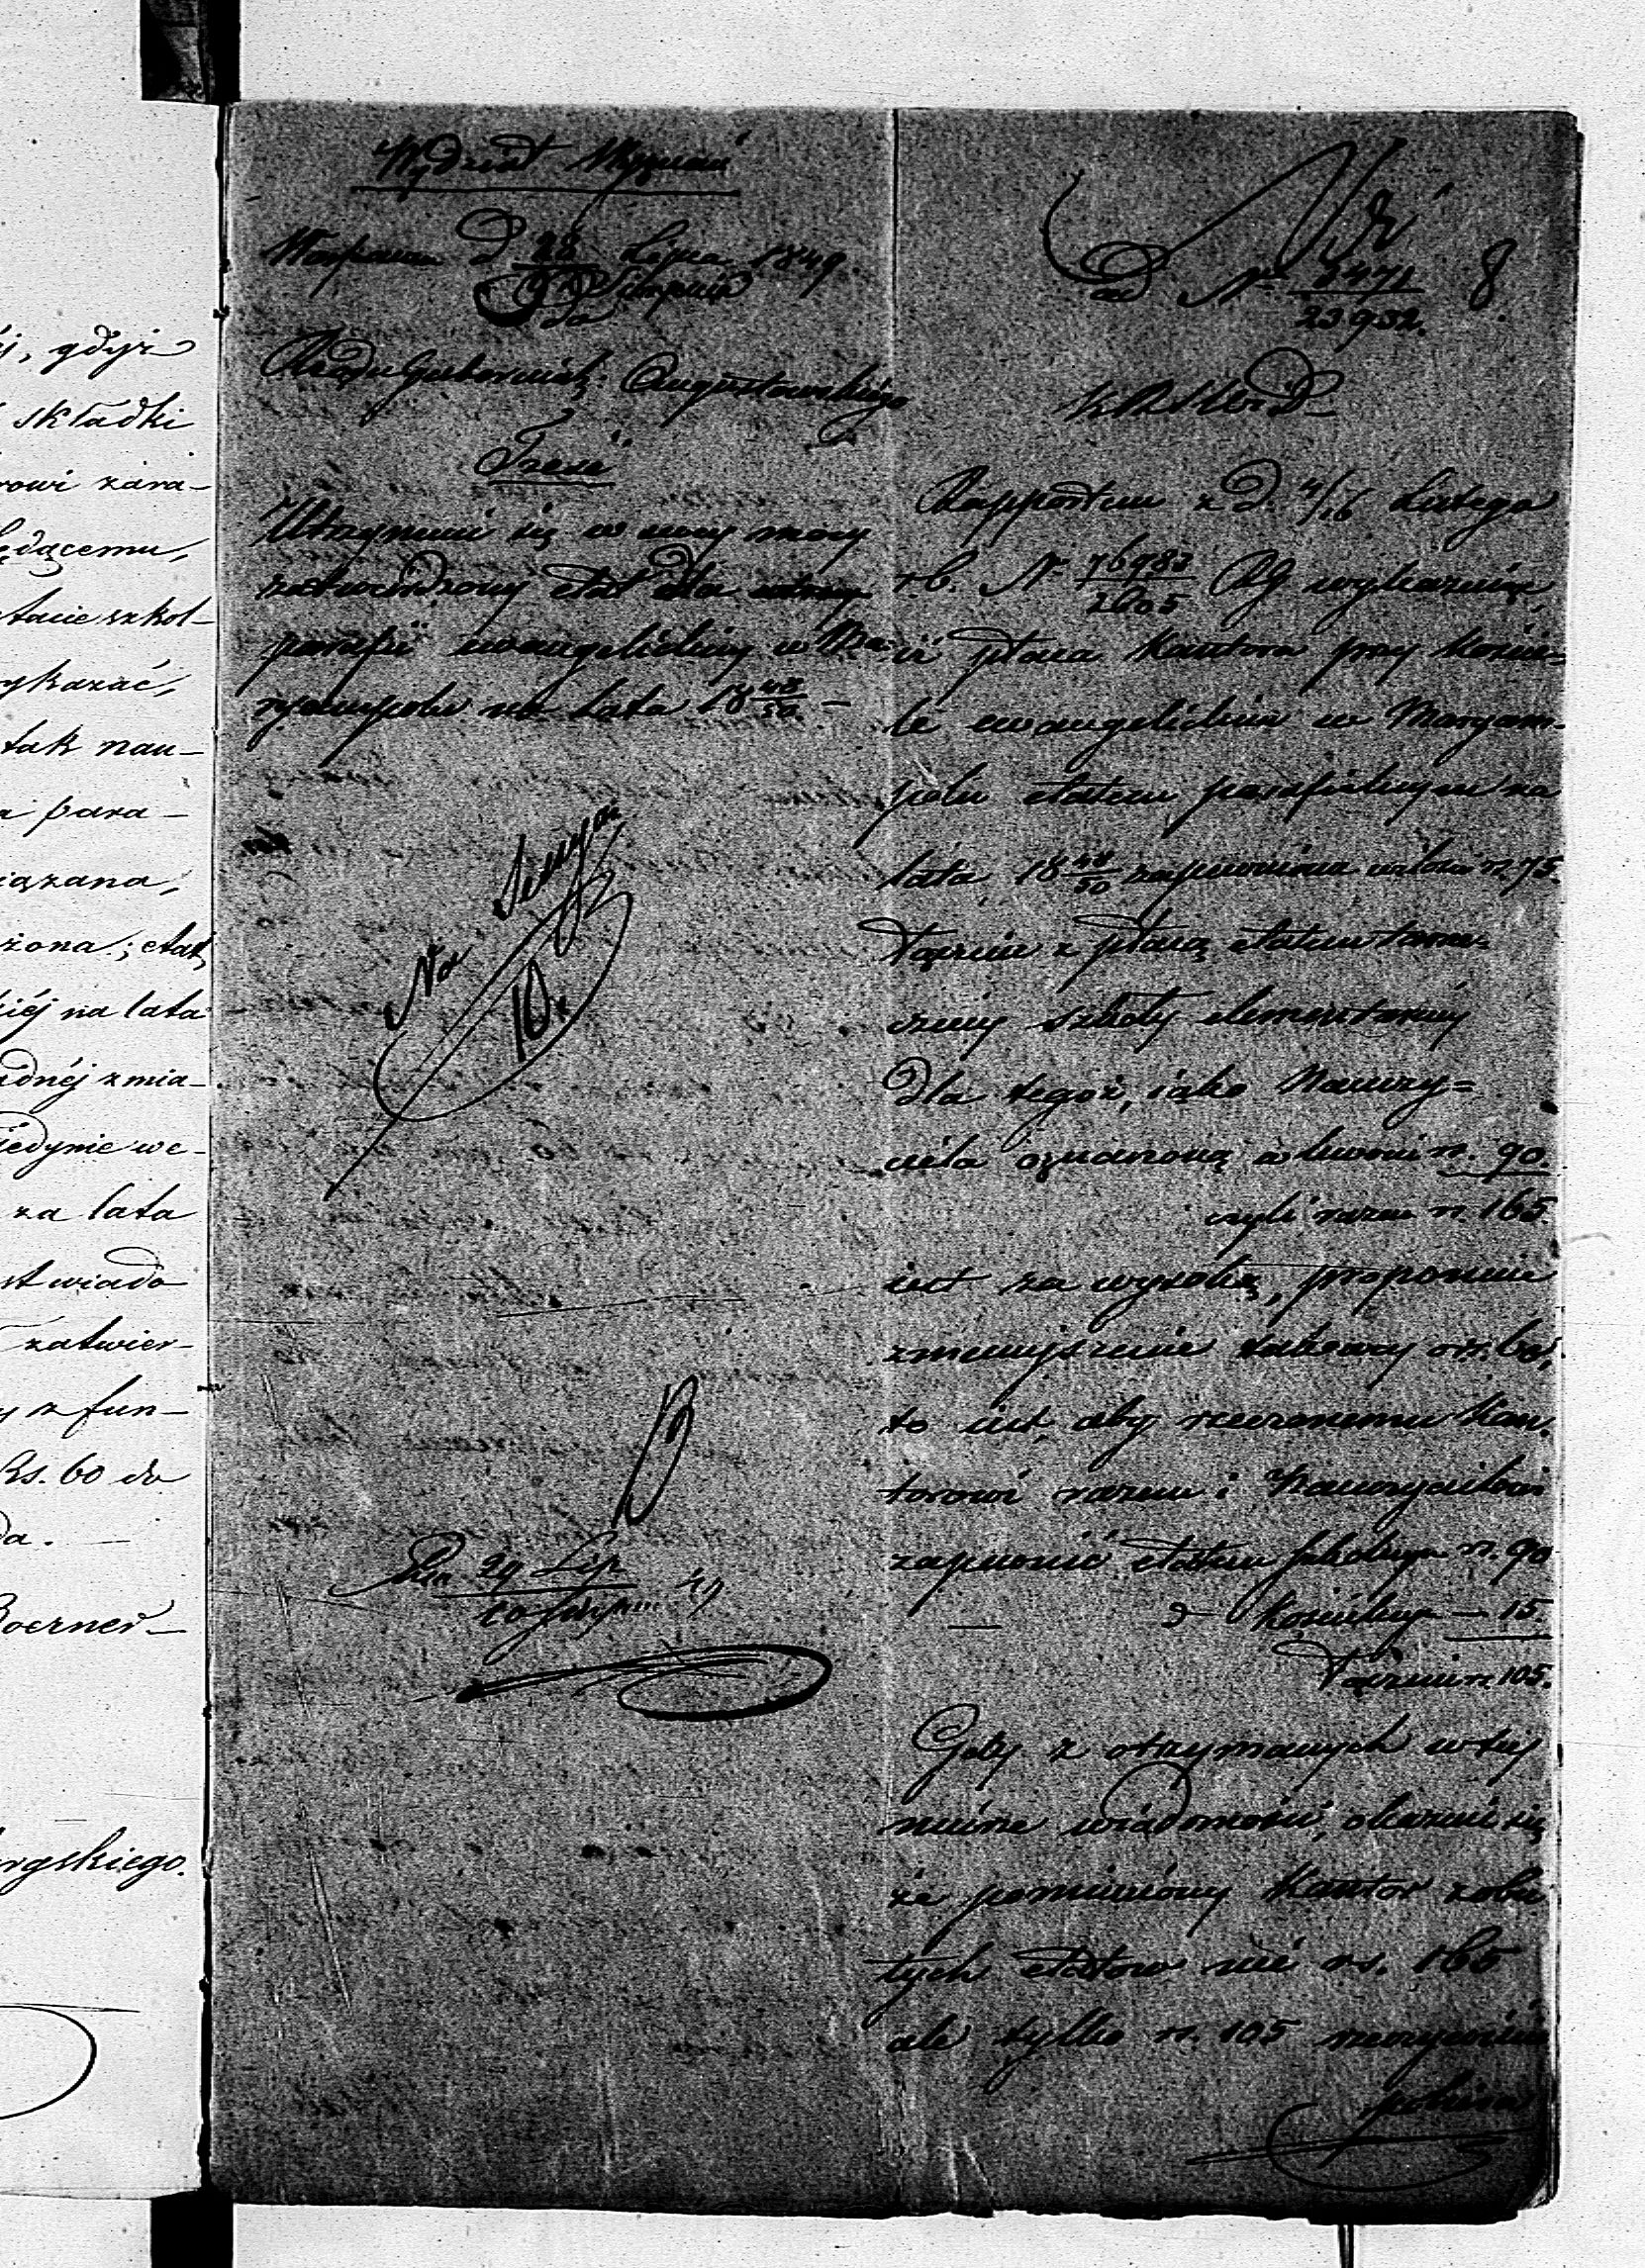 j, gdyż
składki
rowi zara-
będącemu,
etacie szkol-
ykazać,
tak nau-
a para-
iązana,
żona; etat,
kiéj na lata
adnéj zmia-
jedynie we-
za lata
st wiado
zatwier-
y z fun-
Rs. 60 do
da. —
Boerner
rgskiego.
Wydział Wyznań
Warszawa d 28 Lipca 1849.
9 Sierpnia
do
Rządu Gubernial: Augustowskiego
Treść
Utrzymuie się w swey mocy
zatwierdzony etat dla
parafii ewangelickiey w Ma-
ryampolu na lata 18 48/50. —
Na
10.
29 Lip
10 49
8.
ad Nr 6471
23952.
Rapportem z d. 4/16 Lutego
r. b. Nr 76983
2605 RG wykazuiąc,
iż płaca Kantora przy Koście-
le ewangelickim w Maryam-
polu etatem parafialnym na
lata 18 48/50 zapewniona w ilości rs. 75.
łącznie z płacą etatem tame-
czney szkoły elementarney
dla tegoż, iako Nauczy=
ciela oznaczoną w kwocie rs. 90.
czyli razem rs. 165.
iest za wysoką, proponuie
zmnieyszenie takowey o rs. 60,
to iest, aby rzeczonemu Kan-
torowi razem i Nauczycielowi
zapewnić etatem szkolnym rs. 90
d- Kościelnym — 15.
łącznie rs. 105.
Gdy z otrzymanych w tey
mierze wiadomości, okazuie się
że pomieniony Kantor z obu
tych etatów nie rs. 165
ale tylko rs. 105 rzeczywiście
pobiera